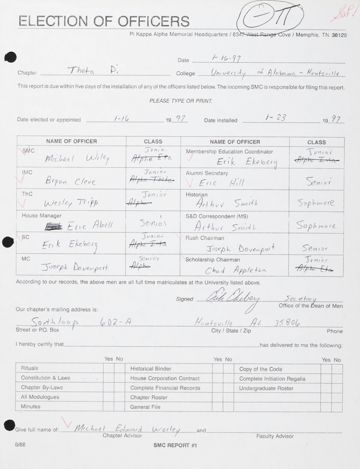 ELECTION OF OFFICERS
Pi Kappa Alpha Memorial Headquarters / 8347 West Range Cove / Memphis, TN 38125
Date 1-16-97
Chapter Theta Pi College University of Alabama - Huntsville
This report is due within five days of the installation of any of the officers listed below. The incoming SMC is responsible for filing this report.
PLEASE TYPE OR PRINT.
Date elected or appointed 1-16 19 97 Date installed 1-23 19 97
NAME OF OFFICER CLASS NAME OF OFFICER CLASS
SMC Junior Membership Education Coordinator Junior
Michael Wiley Erik Ekeberg
IMC Junior Alumni Secretary
Bryan Cleve Eric Hill Senior
ThC Junior Historian
Wesley Tripp Arthur Smith Sophmore
House Manager S&D Correspondent (MS)
Eric Abell Senior Arthur Smith Sophmore
SC Junior Rush Chairman
Erik Ekeberg Joseph Davenport Senior
MC Senior Scholarship Chairman Junior
Joseph Davenport Chad Appleton
According to our records, the above men are all full time matriculates at the University listed above.
Signed Secretary
Office of the Dean of Men
Our chapter's mailing address is:
Southloop 602-A Huntsville AL 35806
Street or P.O. Box City / State / Zip Phone
I hereby certify that has delivered to me the following:
Yes No Yes No Yes No
Rituals Historical Binder Copy of the Code
Constitution & Laws House Corporation Contract Complete Initiation Regalia
Chapter By-Laws Complete Financial Records Undergraduate Roster
All Modulogues Chapter Roster
Minutes General File
Give full name of: Michael Edward Wesley and
Chapter Advisor Faculty Advisor
6/88 SMC REPORT #1